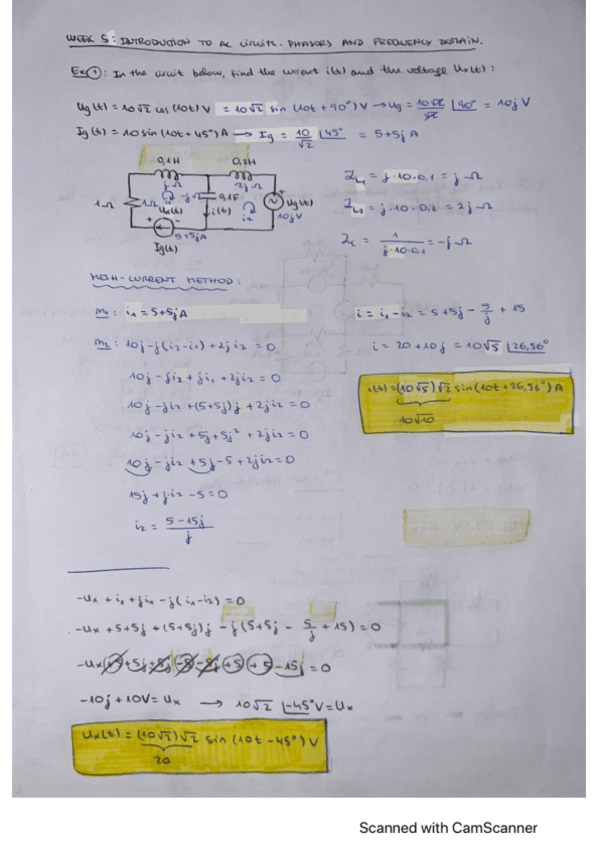 WEEK 5: INTRODUCTION TO AC CIRCUITS. PHASORS AND FREQUENCY DOMAIN.
Ex①: In the circuit below, find the current i(t) and the voltage Ux(t):
Ug(t) = 10√2 cos(10t) V = 10√2 sin(10t + 90°) V → Ug = 10√2/√2 ∠90° = 10j V
Ig(t) = 10 sin(10t + 45°) A → Ig = 10/√2 ∠45° = 5+5j A
0,1H 0,2H
jΩ 2jΩ
1Ω i1 -jΩ 0,1F Ug(t)
Ux(t) i(t) i2 10jV
+ -
5+5jA
Ig(t)
ZL1 = j·10·0,1 = jΩ
ZL2 = j·10·0,2 = 2jΩ
Zc = 1/(j·10·0,1) = -jΩ
MESH-CURRENT METHOD:
m1: i1 = 5+5j A
m2: 10j - j(i2-i1) + 2j i2 = 0
10j - ji2 + ji1 + 2ji2 = 0
10j - ji2 + (5+5j)j + 2ji2 = 0
10j - ji2 + 5j + 5j² + 2ji2 = 0
10j - ji2 + 5j - 5 + 2ji2 = 0
15j + j·i2 - 5 = 0
i2 = (5-15j)/j
i = i1 - i2 = 5+5j - 5/j + 15
i = 20+10j = 10√5 ∠26,56°
i(t) = (10√5)√2 sin(10t + 26,56°) A
10√10
-Ux + i1 + ji1 - j(i1-i2) = 0
-Ux + 5+5j + (5+5j)j - j(5+5j - 5/j + 15) = 0
-Ux +5 +5j +5j -5 -5j +5 +5 -15j = 0
-10j + 10V = Ux → 10√2 ∠-45° V = Ux
Ux(t) = (10√2)√2 sin(10t - 45°) V
20
Scanned with CamScanner